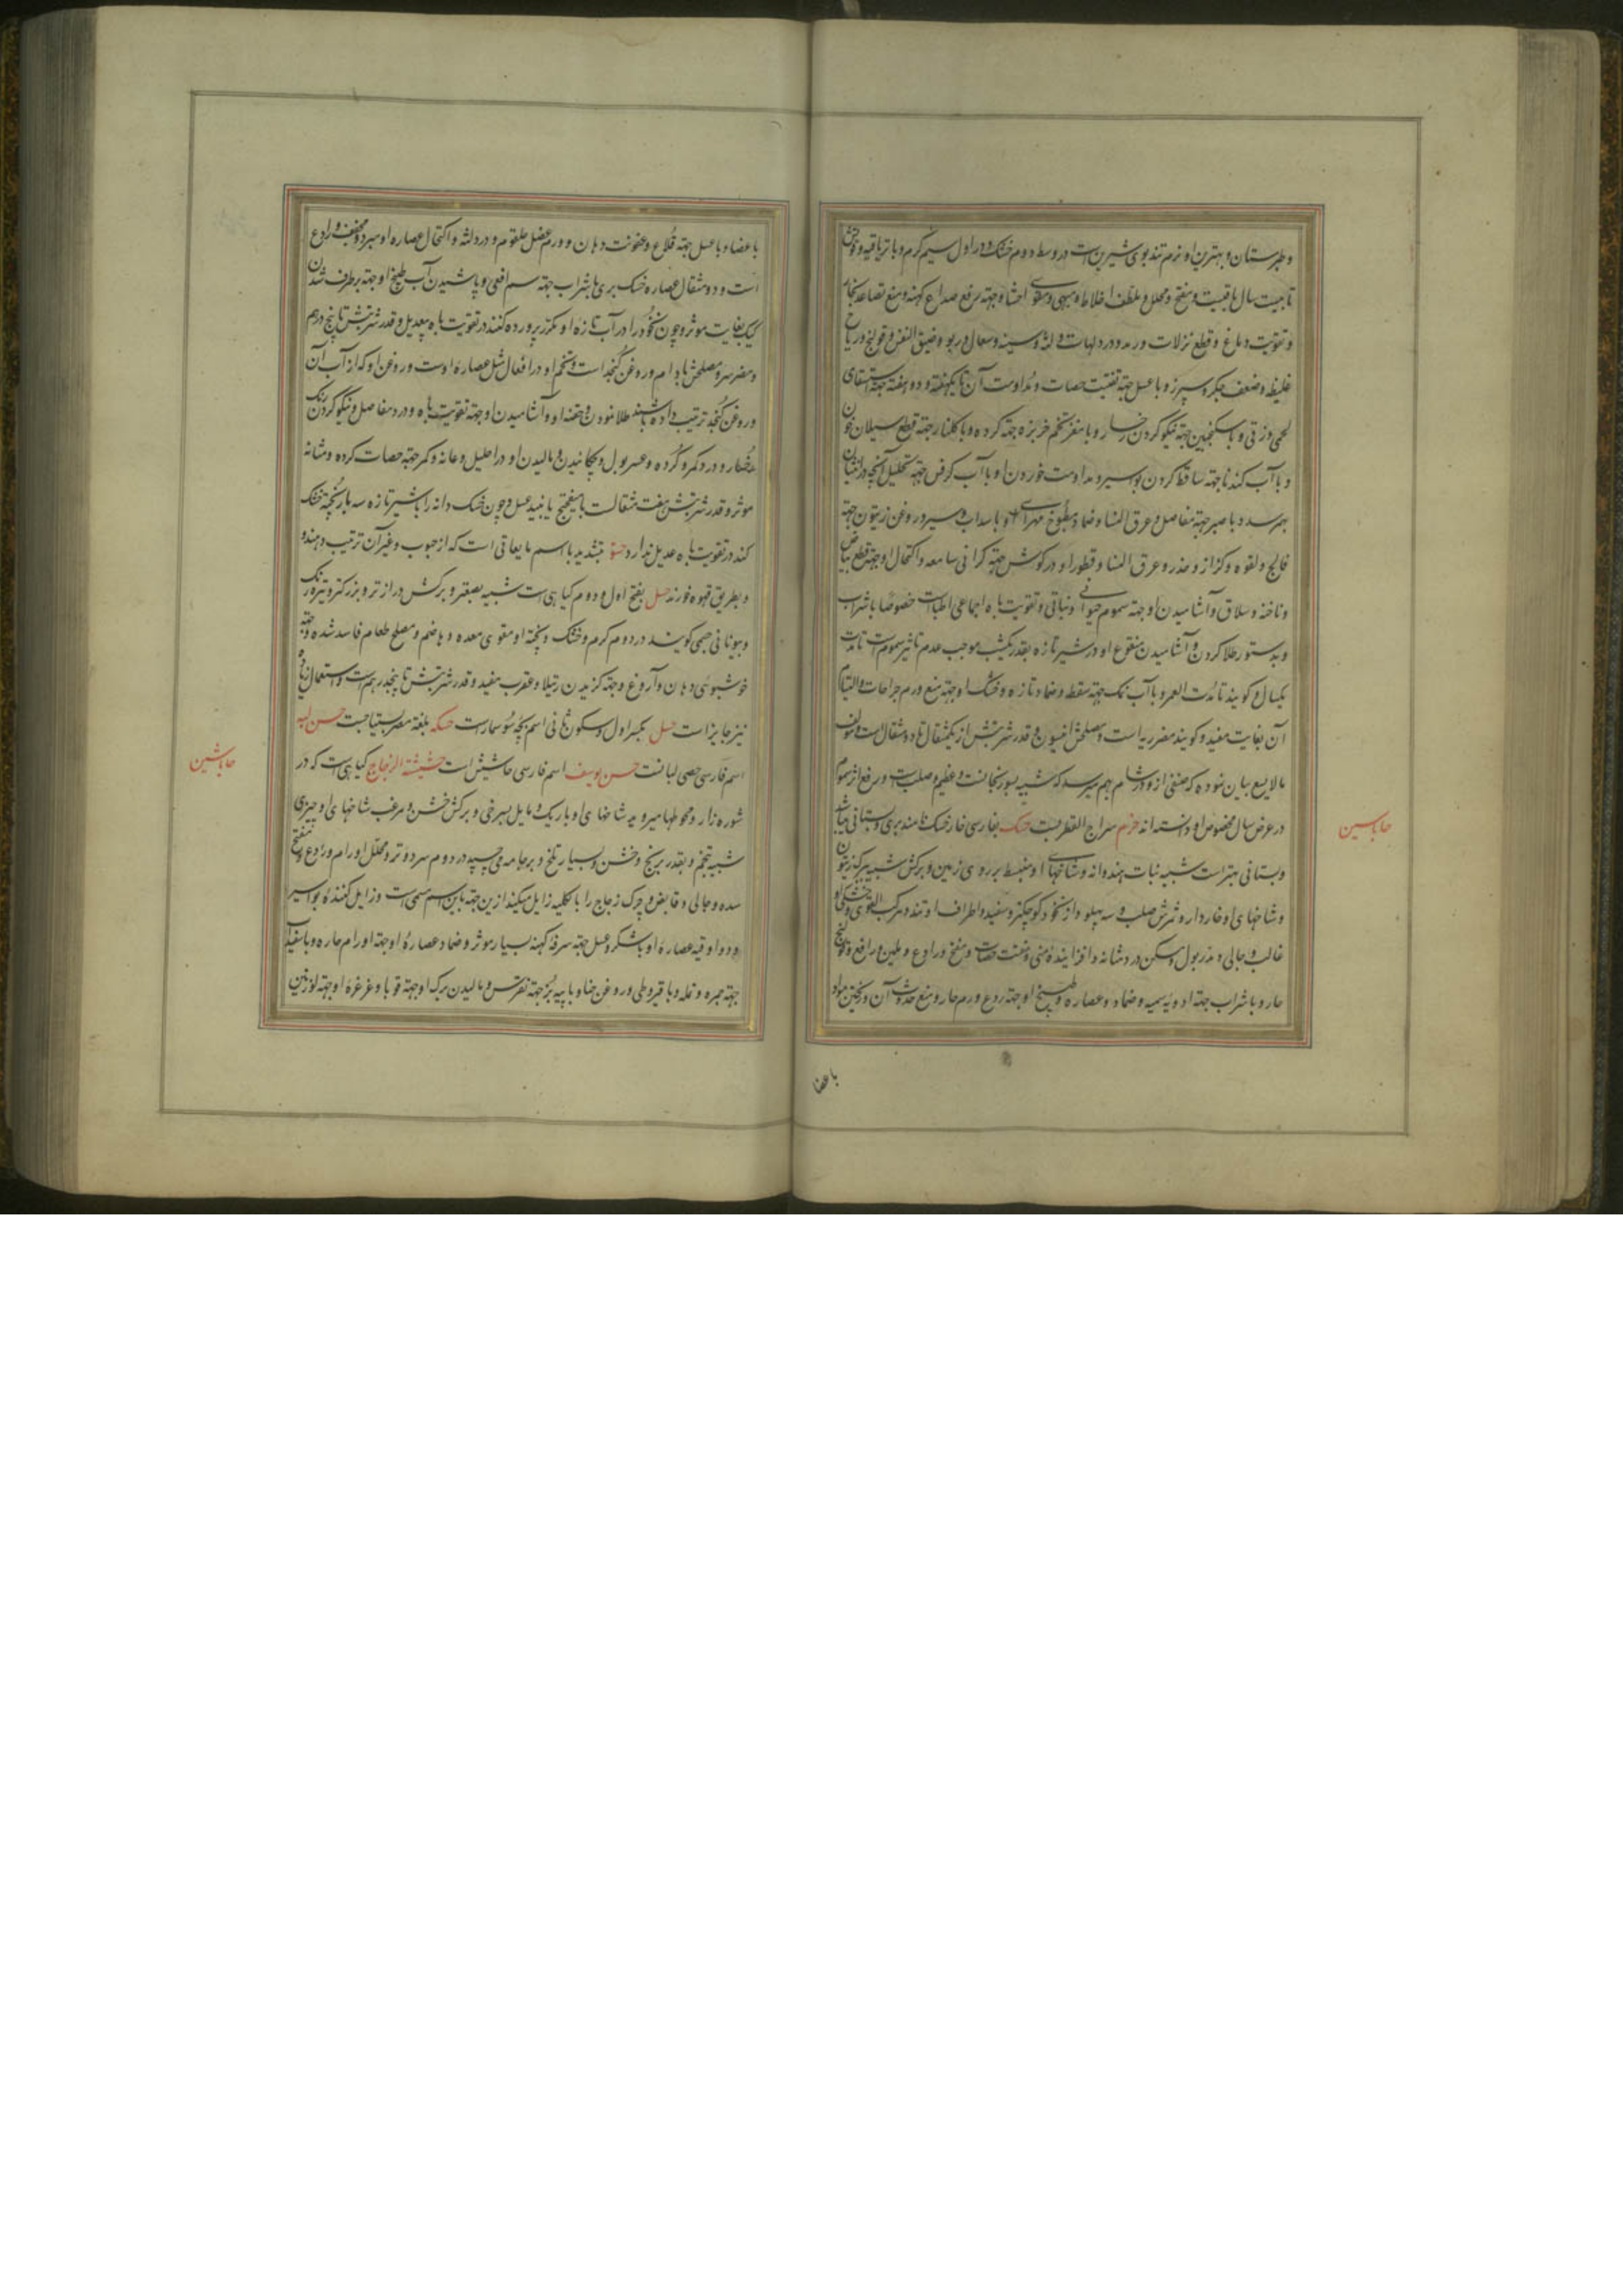 و طبرستان و بهترین او نرم تند بوی شیرین است در وسط دوم خشک و در اول سیم گرم و با تریاقیه و قوتش
تا بیست سال باقیست و مفتح و محلل و ملطف اخلاط و مبهی و مقوی احشا و جهة رفع صداع کهنه و منع تصاعد بخار
و تقویت دماغ و قطع نزلات و رمد و درد لهات و لثه و سینه و سعال و ربو و ضیق النفس و قولنج و ریاح
غلیظه و ضعف جگر و سپرز و با عسل جهة تفتیت حصات و مداومت آن تا یکهفته و دو هفته جهة استسقای
لحمی و زقی و با سکنجبین جهة نیکو کردن رخسار و با مغز تخم خربزه جهة گرده و با گلنار جهة قطع سیلان خون
و با آب گندنا جهة ساقط کردن بواسیر و مداومت خوردن او با آب کرفس جهة تحلیل آنچه در انثیان
بهرسد و با صبر جهة مفاصل و عرق النسا و ضماد مطبوخ مهرای او با سداب و سیر در روغن زیتون جهة
فالج و لقوه و کزاز و خدر و عرق النسا و قطور او در گوش جهة گرانی سامعه و اکتحال او جهة قطع بیاض
و ناخنه و سلاق و آشامیدن او جهة سموم حیوانی و نباتی و تقویت باه اجماعی اطباست خصوصا با شراب
و بدستور طلا کردن و آشامیدن منقوع او در شیر تازه بقدر یکشب موجب عدم تاثیر سموم است تا مدت
یکسال و گویند تا مدت العمر و با آب نمک جهة سقطه و ضماد تازه و خشک او جهة منع ورم جراحات و التیام
آن بغایت مفید و گویند مضر ریه است و مصلحش انیسون و قدر شربتش از یکمثقال تا دو مثقال است و مولف
مالایسع بیان نموده که صنفی از او در شام بهم میرسد که شبیه بسورنجانست و عظیم و صلب است و رفع اثر سموم
در عرض سال مخصوص او دانسته اند حزم سراج القطربست حسک بفارسی خار خسک نامند بری و بستانی میباشد
و بستانی بهتر است شبیه نبات هندوانه و شاخهای او منبسط بر روی زمین و برگش شبیه ببرگ زیتون
و شاخهای او خاردار و ثمرش صلب و سه پهلو و از نخود کوچکتر و سفید و اطراف او تند و مرکب القوی و خشکی او
غالب و جالی و مدر بول و مسکن درد مثانه و افزاینده منی و مفتت حصات و منضج و رادع و ملین و رافع قولنج
حار و با شراب جهة ادویه سمیه و ضماد و عصاره و طبیخ او جهة ردع ورم حار و منع حدوث آن و ریختن مواد
باعضا
حاباسین
باعضا و با عسل جهة قلاع و عفونت دهان و ورم عضل حلقوم و درد لثه و اکتحال عصاره او مبرد و مجفف و رادع
است و دو مثقال عصاره خسک بری با شراب جهة سم افعی و پاشیدن آب طبیخ او جهة برطرف شدن
کیک بغایت موثر و چون نخود را در آب تازه او مکرر پرورده کنند در تقویت باه بیعدیل و قدر شربتش تا پنج درهم
و مضر سر و مصلحش بادام و روغن کنجد است و تخم او در افعال مثل عصاره اوست و روغن او که از آب آن
و روغن کنجد ترتیب داده باشند طلا نمودن و حقنه او و آشامیدن او جهة تقویت باه و درد مفاصل و نیکو کردن رنگ
رخسار و درد کمر و گرده و عسر بول و چکانیدن و مالیدن او در احلیل و عانه و کمر جهة حصات گرده و مثانه
موثر و قدر شربتش هفت مثقالست با میفختج یا نبیذ عسل و چون خسک دانه را با شیر تازه سه بار پخته خشک
کنند در تقویت باه عدیل ندارد حسو بتشدید با اسم مایعاتی است که از حبوب و غیر آن ترتیب دهند و
و بطریق قهوه خورند حسل بفتح اول و دوم گیاهی است شبیه بصعتر و برگش درازتر و بزرگتر و تیره رنگ
و بیونانی جمی گویند در دوم گرم و خشک و پخته او مقوی معده و هاضم و مصلح طعام فاسد شده و جهة
خوشبوئی دهان و آروغ و جهة گزیدن رتیلا و عقرب مفید و قدر شربتش تا پنجدرهم است و استعمال زیاده
نیز جایز است حسل بکسر اول و سکون ثانی اسم بچه سوسمار است حسکه بلغة مصر بستیاجست حسن لبه
اسم فارسی حصی لبانست حسن یوسف اسم فارسی حاشیش است حشیشة الزجاج گیاهی است که در
شوره زار و محوطها میروید شاخهای او باریک و مایل بسرخی و برگش خشن و مزغب شاخهای او چیزی
شبیه بتخم و بقدر برنج و خشن و بسیار تلخ و بر جامه می چسپد در دوم سرد و تر و محلل اورام و رادع و مفتح
سده و جالی و قابض و چرک زجاج را بالکلیه زایل میکند ازین جهة باین اسم مسمی است و زایل کننده بواسیر
و دو اوقیه عصاره او با شکر و عسل جهة سرفه کهنه بسیار موثر و ضماد عصاره او جهة اورام حاره و با سفیداب
جهة جمره و نمله و با قیروطی و روغن حنا و با پیه بز جهة نقرس و مالیدن برگ او جهة قوبا و غرغره او جهة لوزتین
حاباشین